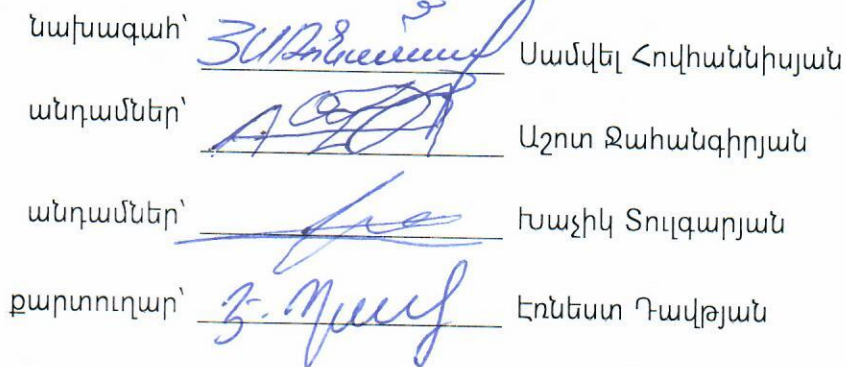 նախագահ՝ Սամվել Հովհաննիսյան
անդամներ՝ Աշոտ Ջահանգիրյան
անդամներ՝ Խաչիկ Տուլգարյան
քարտուղար՝ Էռնեստ Դավթյան